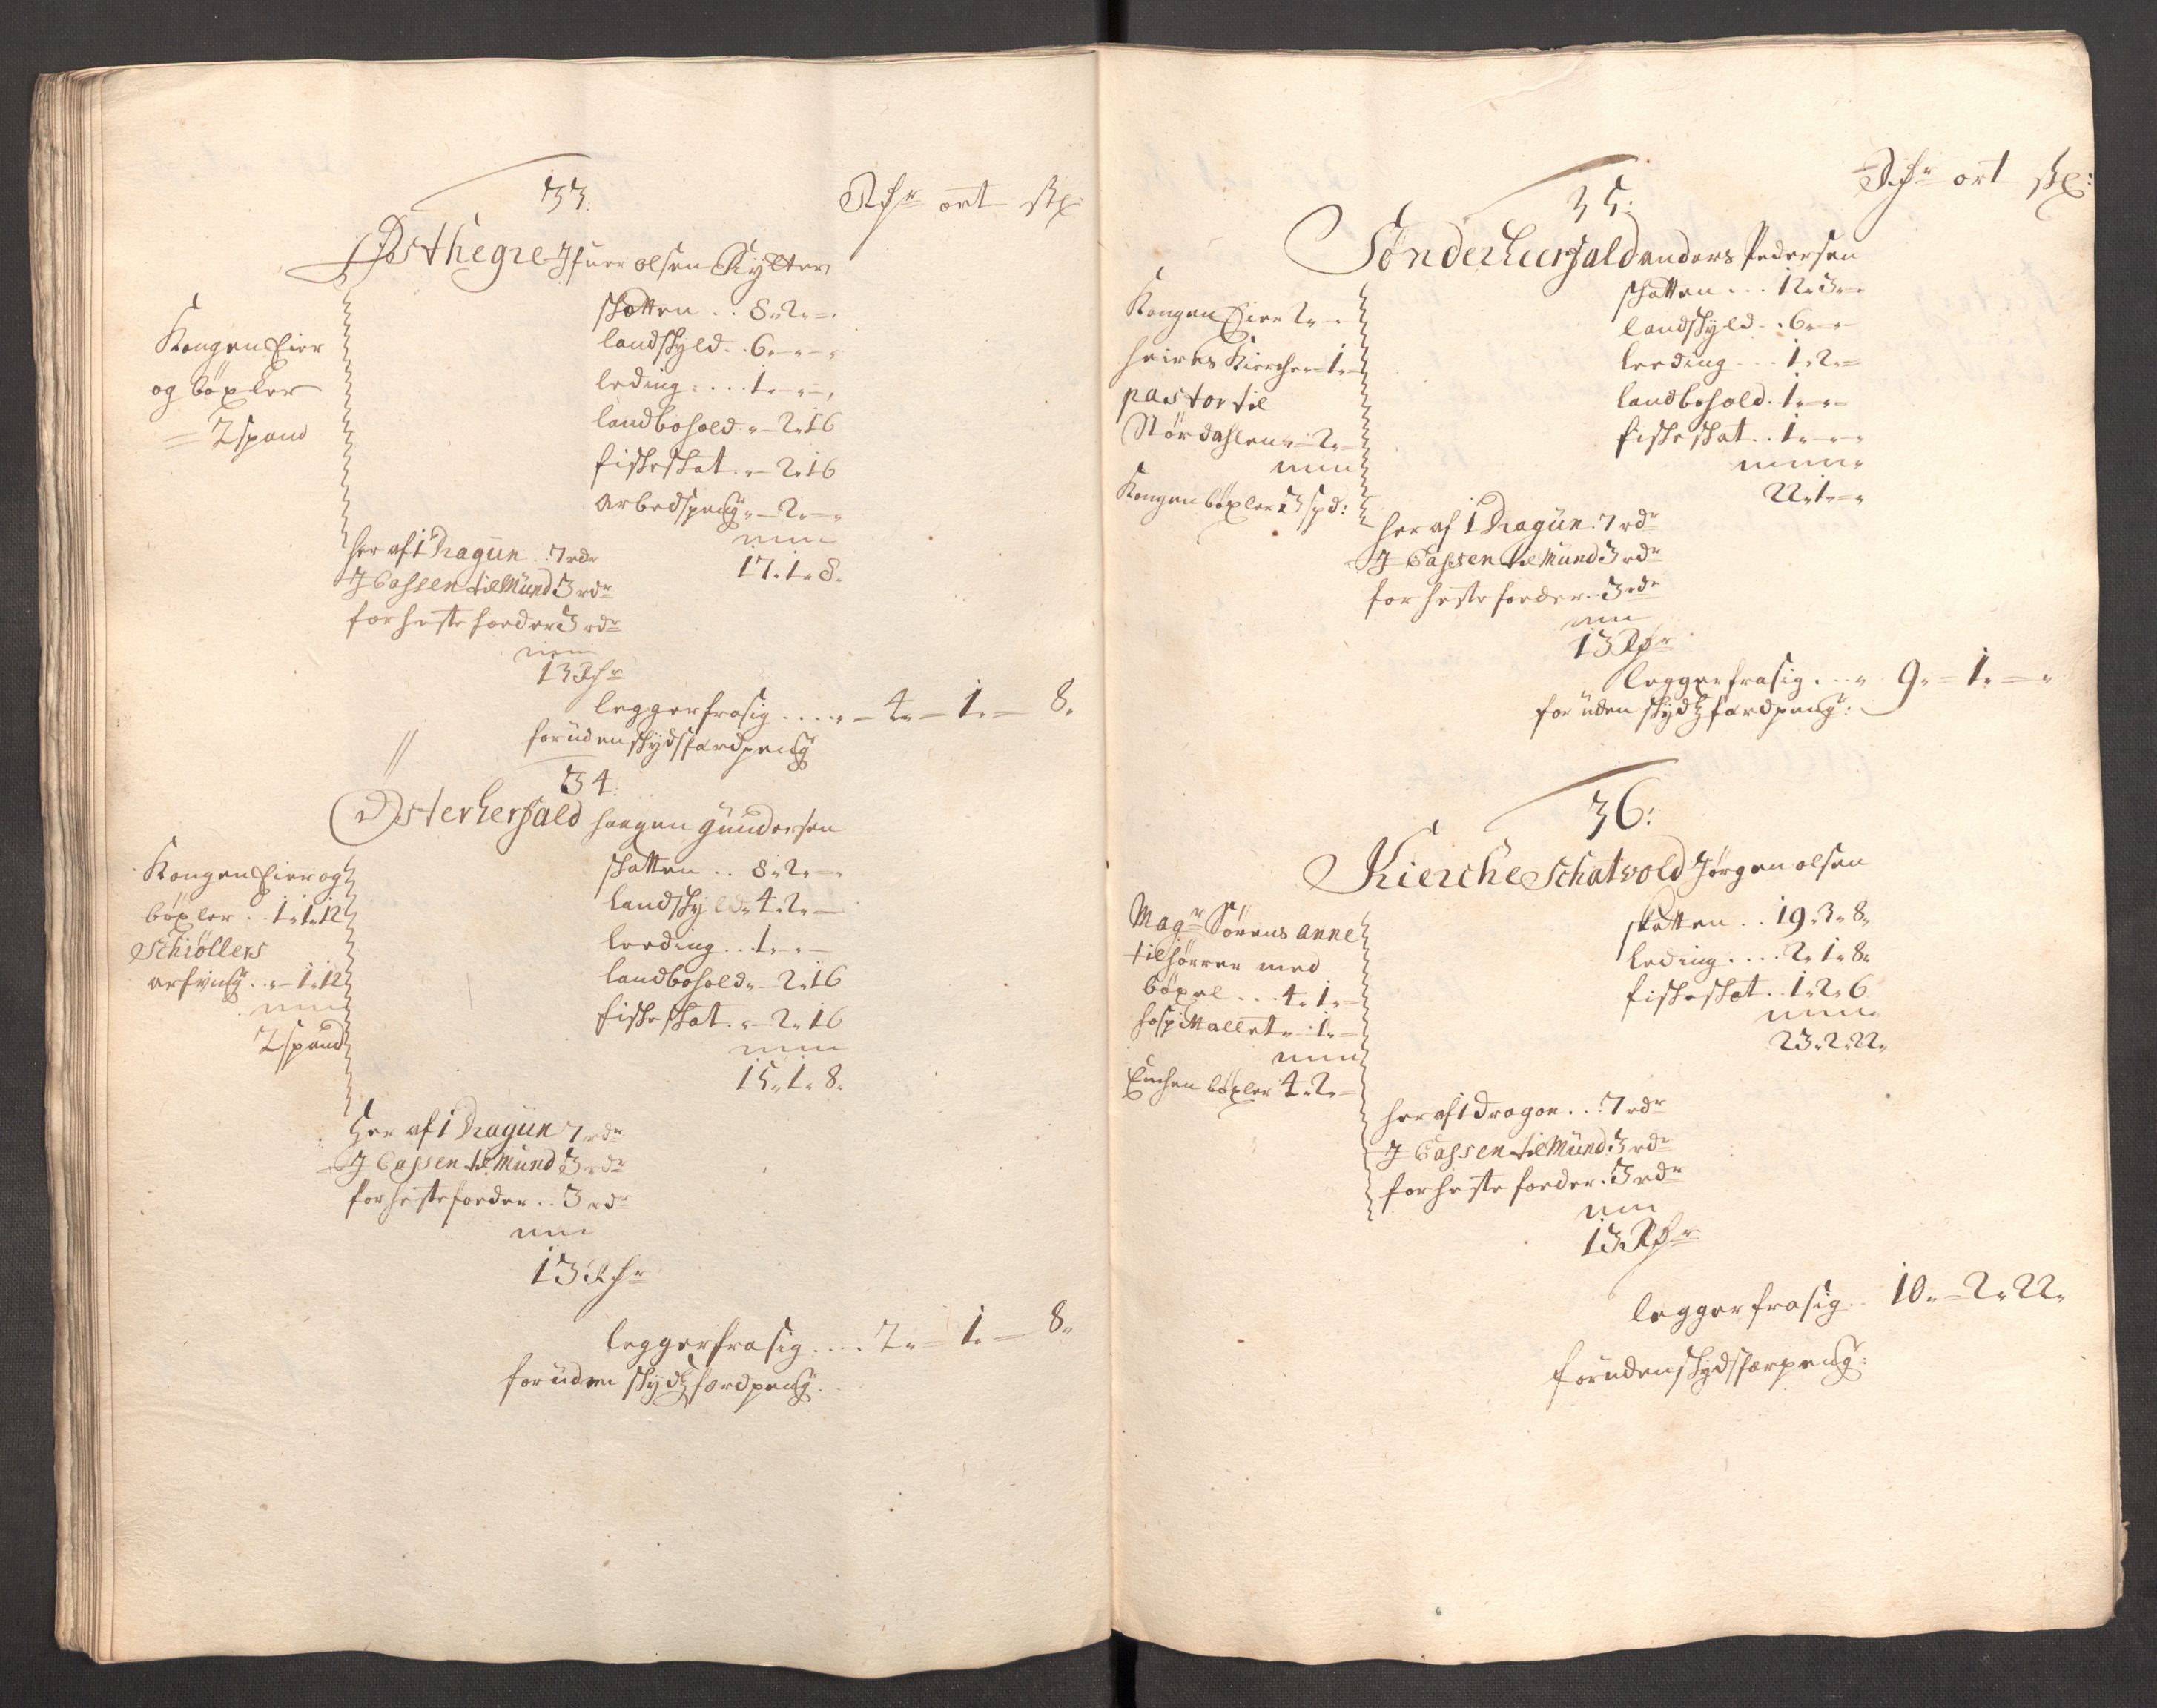 33.
Rdr ort sk:
Østhegre Ifuer olsen Rytter
Kongen Eier
og böxler
= 2 spand
skatten .. 8„2„–„
landskyld .. 6„–„–„
leding .... 1„–„–„
landbohold „–2„16
fiskeskat „–2„16
arbedspeng „–2„–„
17„1„8„
her af 1 Dragun .. 7 rdr
J Cassen til Mund 3 rdr
for heste foeder 3 rdr
13 Rdr
legger fra sig ..... „–4„–1„–8„
foruden skydsfærdpeng
34:
Østerhersald haagen Gundersen
Kongen Eier og
böxler . 1„1„12
Schiøllers
arfving .. „–1„12
2 spand
skatten .. 8„2„–„
landskyld „4„2„–
leeding .. 1„–„–
landbohold „–2„16
fiskeskat „–2„16
15„1„8„
Her af 1 Dragun 7 rdr
J Cassen til Mund 3 rdr
for heste foeder .. 3 rdr
13 Rdr
legger fra sig .... 2„–1„–8„
foruden skydsfærdpeng:
Rdr ort sk:
35:
Sønderhersald anders Pedersen
Kongen Eier 2„–„
heires Kierche „–1„–
pastor til
Størdahlen „–2„–
Kongen böxler 3 spd:
skatten ... 12„3„–„
landskyld .. 6„–„–
leeding ... 1„2„–
landbohold . 1„–„–
fiskeskat .. 1„–„–„
22„1„–„
her af 1 Dragun . 7 rdr
J Cassen til Mund 3 rdr
for heste foeder .. 3 rdr
13 Rdr
legger fra sig ... „ 9„–1„–„
for uden skydsfærdpeng:
36:
Kierche Schatvold Jørgen olsen
Magr Sörens anne
tilhörrer med
böxel ... 4„1„–
hospitallet „–1„–
Enchen böxler 4„2„–
skatten .. 19„3„8„
leding .... 2„1„8„
fiskeskat .. 1„2„6
23„2„22„
her af 1 dragon .. 7 rdr
J Cassen til Mund 3 rdr
for heste foeder . 3 rdr
13 Rdr
legger fra sig .. 10„–2„22„
foruden skydsfærpeng: